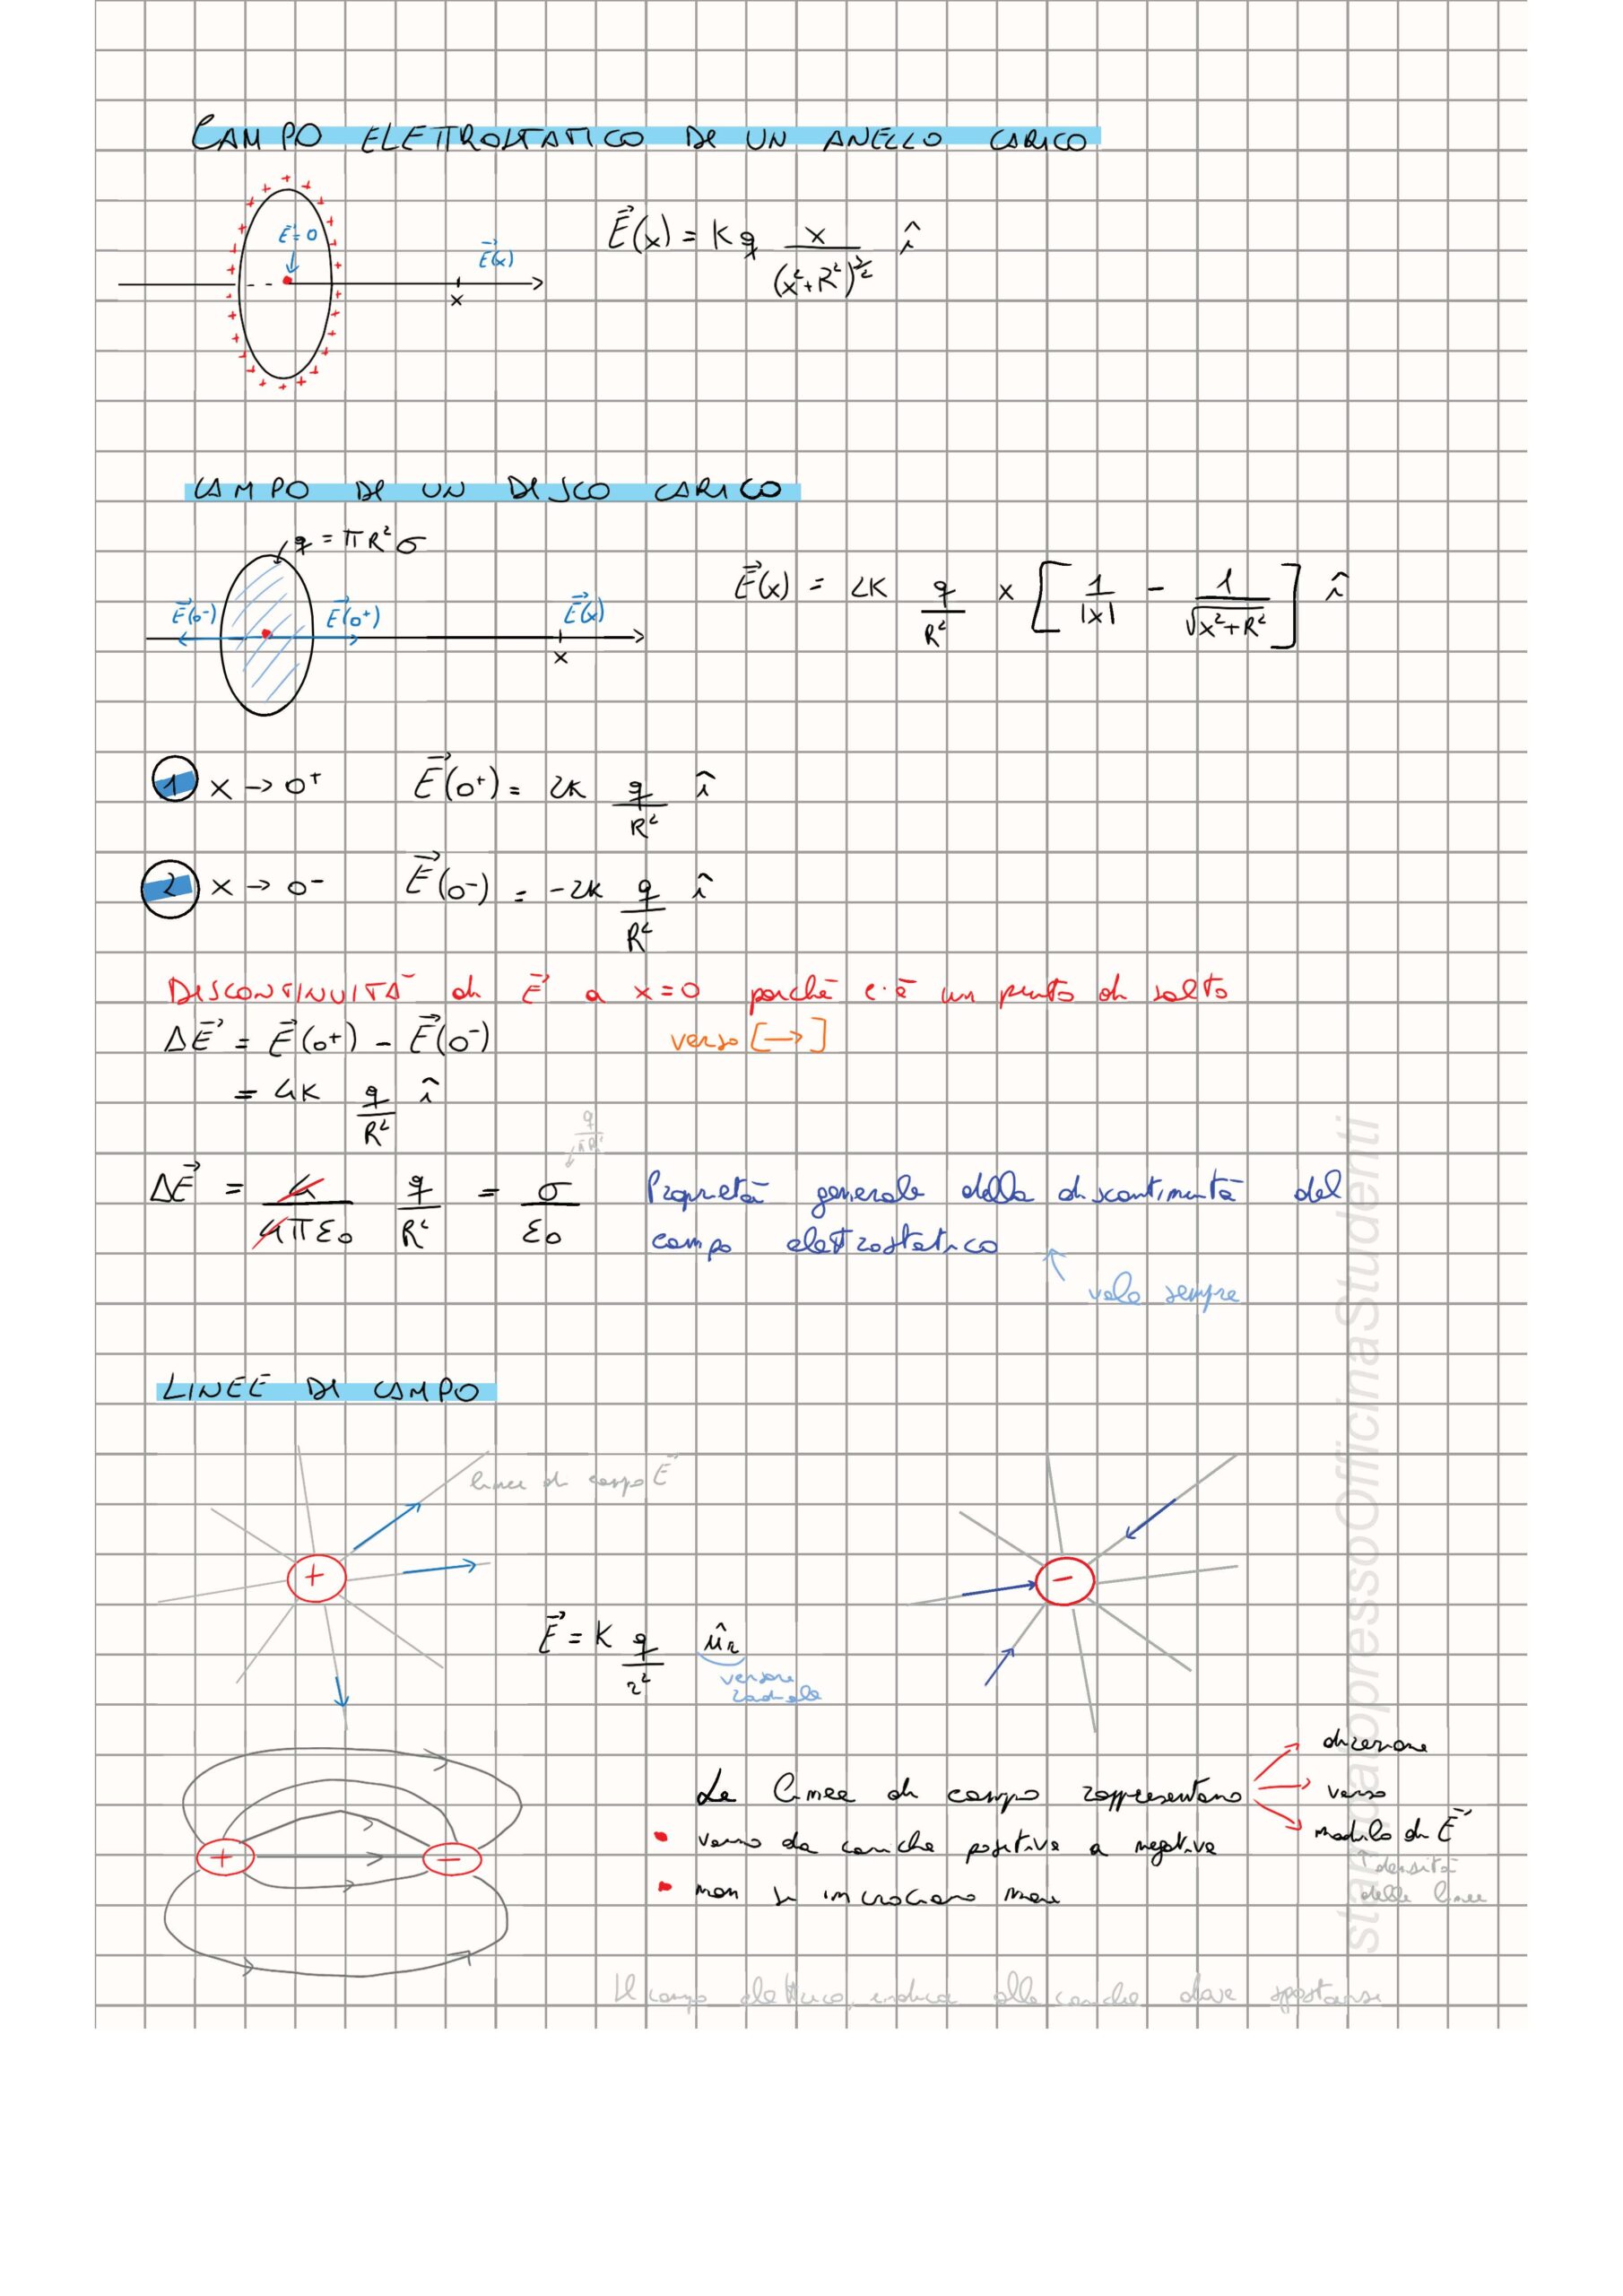 CAMPO ELETTROSTATICO DI UN ANELLO CARICO
+ + + + + + + + + + + + + + + + + + + + + + + + + + +
E⃗=0
E⃗(x)
x
E⃗(x) = K q x/(x²+R²)^(3/2) î
CAMPO DI UN DISCO CARICO
q = πR²σ
E⃗(0⁻) E⃗(0⁺) E⃗(x)
x
E⃗(x) = 2K q/R² x [ 1/|x| - 1/√(x²+R²) ] î
1 x → 0⁺ E⃗(0⁺) = 2K q/R² î
2 x → 0⁻ E⃗(0⁻) = -2K q/R² î
DISCONTINUITÀ di E⃗ a x=0 perchè c'è un punto di salto
ΔE⃗ = E⃗(0⁺) - E⃗(0⁻) verso [→]
= 4K q/R² î
q/πR²
ΔE⃗ = 4/4πε₀ q/R² = σ/ε₀ Proprietà generale della discontinuità del
campo elettrostatico
vale sempre
LINEE DI CAMPO
linee di campo E⃗
+
-
E⃗ = K q/r² û_r
versore
radiale
Le linee di campo rappresentano
direzione
verso
modulo di E⃗
densità
delle linee
+ -
• vanno da cariche positive a negative
• non si incrociano mai
Il campo elettrico, indica alle cariche dove spostarsi
stampatopressoOfficinaStudenti